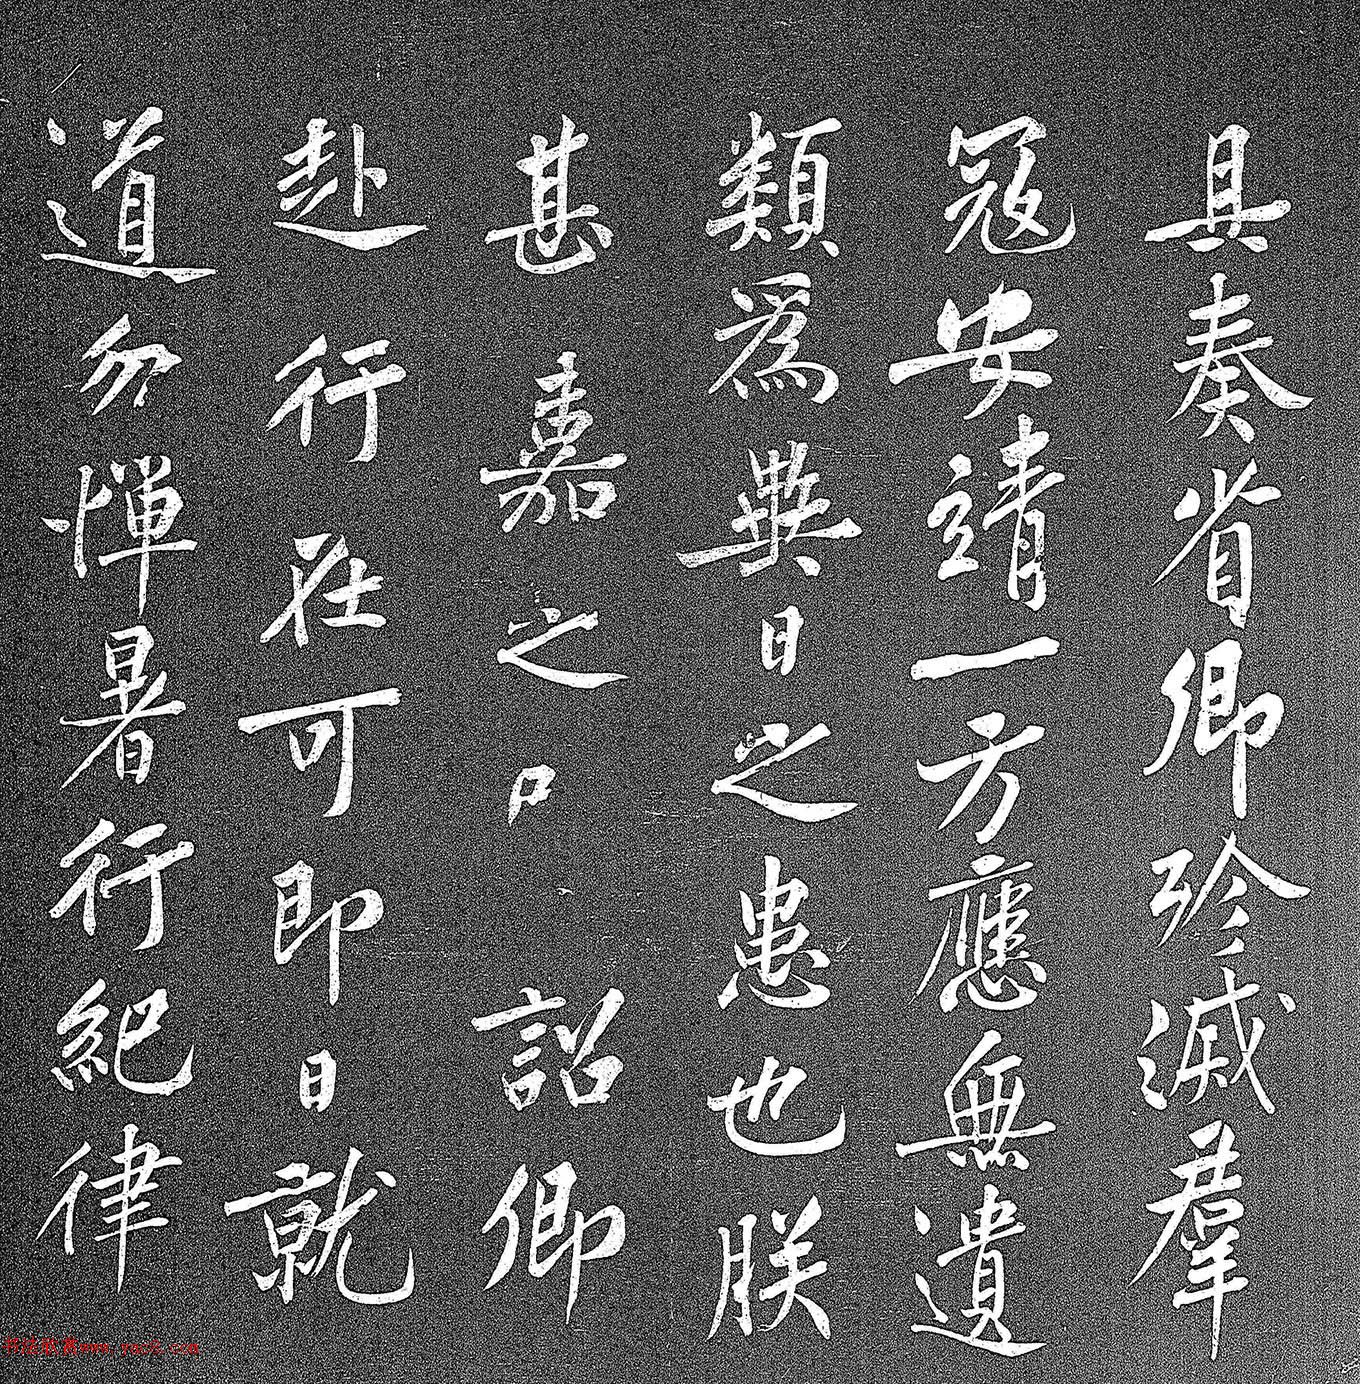 具奏省卿殄滅羣
寇安靖一方應無遺
類爲異日之患也朕
甚嘉之 詔卿
赴行在可即日就
道勿憚暑行紀律
书法欣赏www.yac8.com